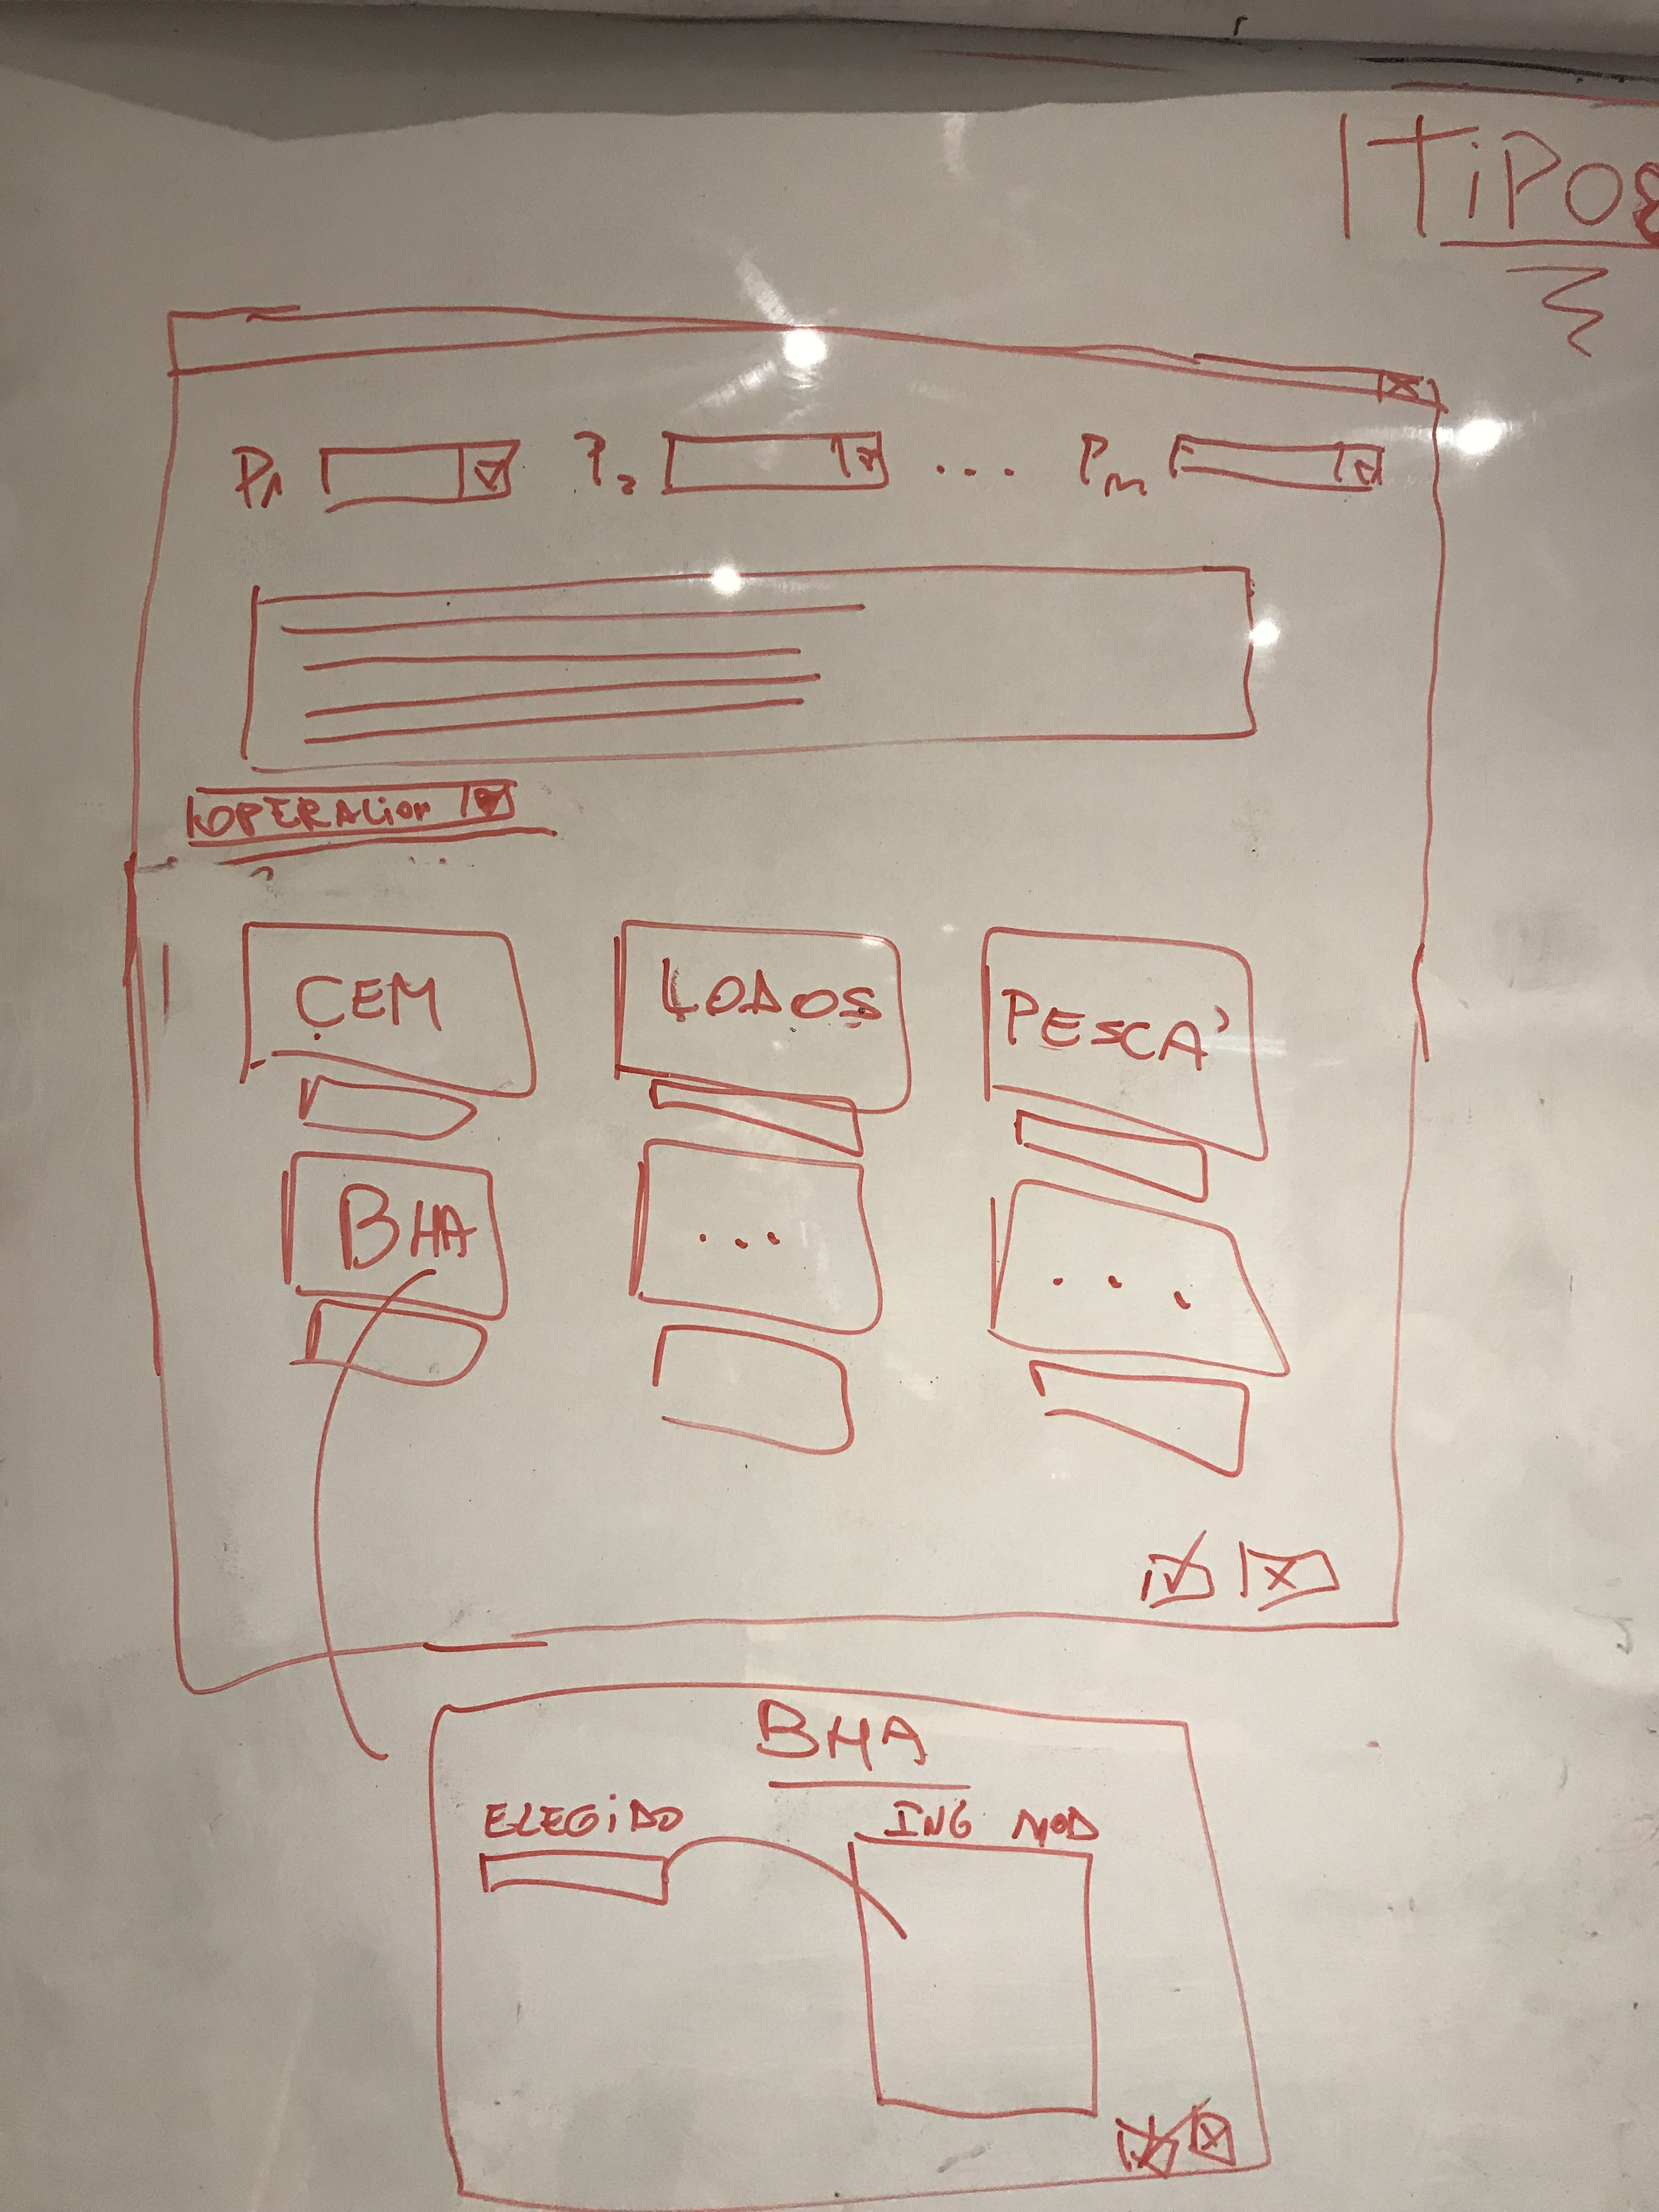 TiPOS
P1 P2 ... Pm
OPERACion
CEM LODOS PESCA
BHA ... ...
BHA
ELEGiDO ING MOD